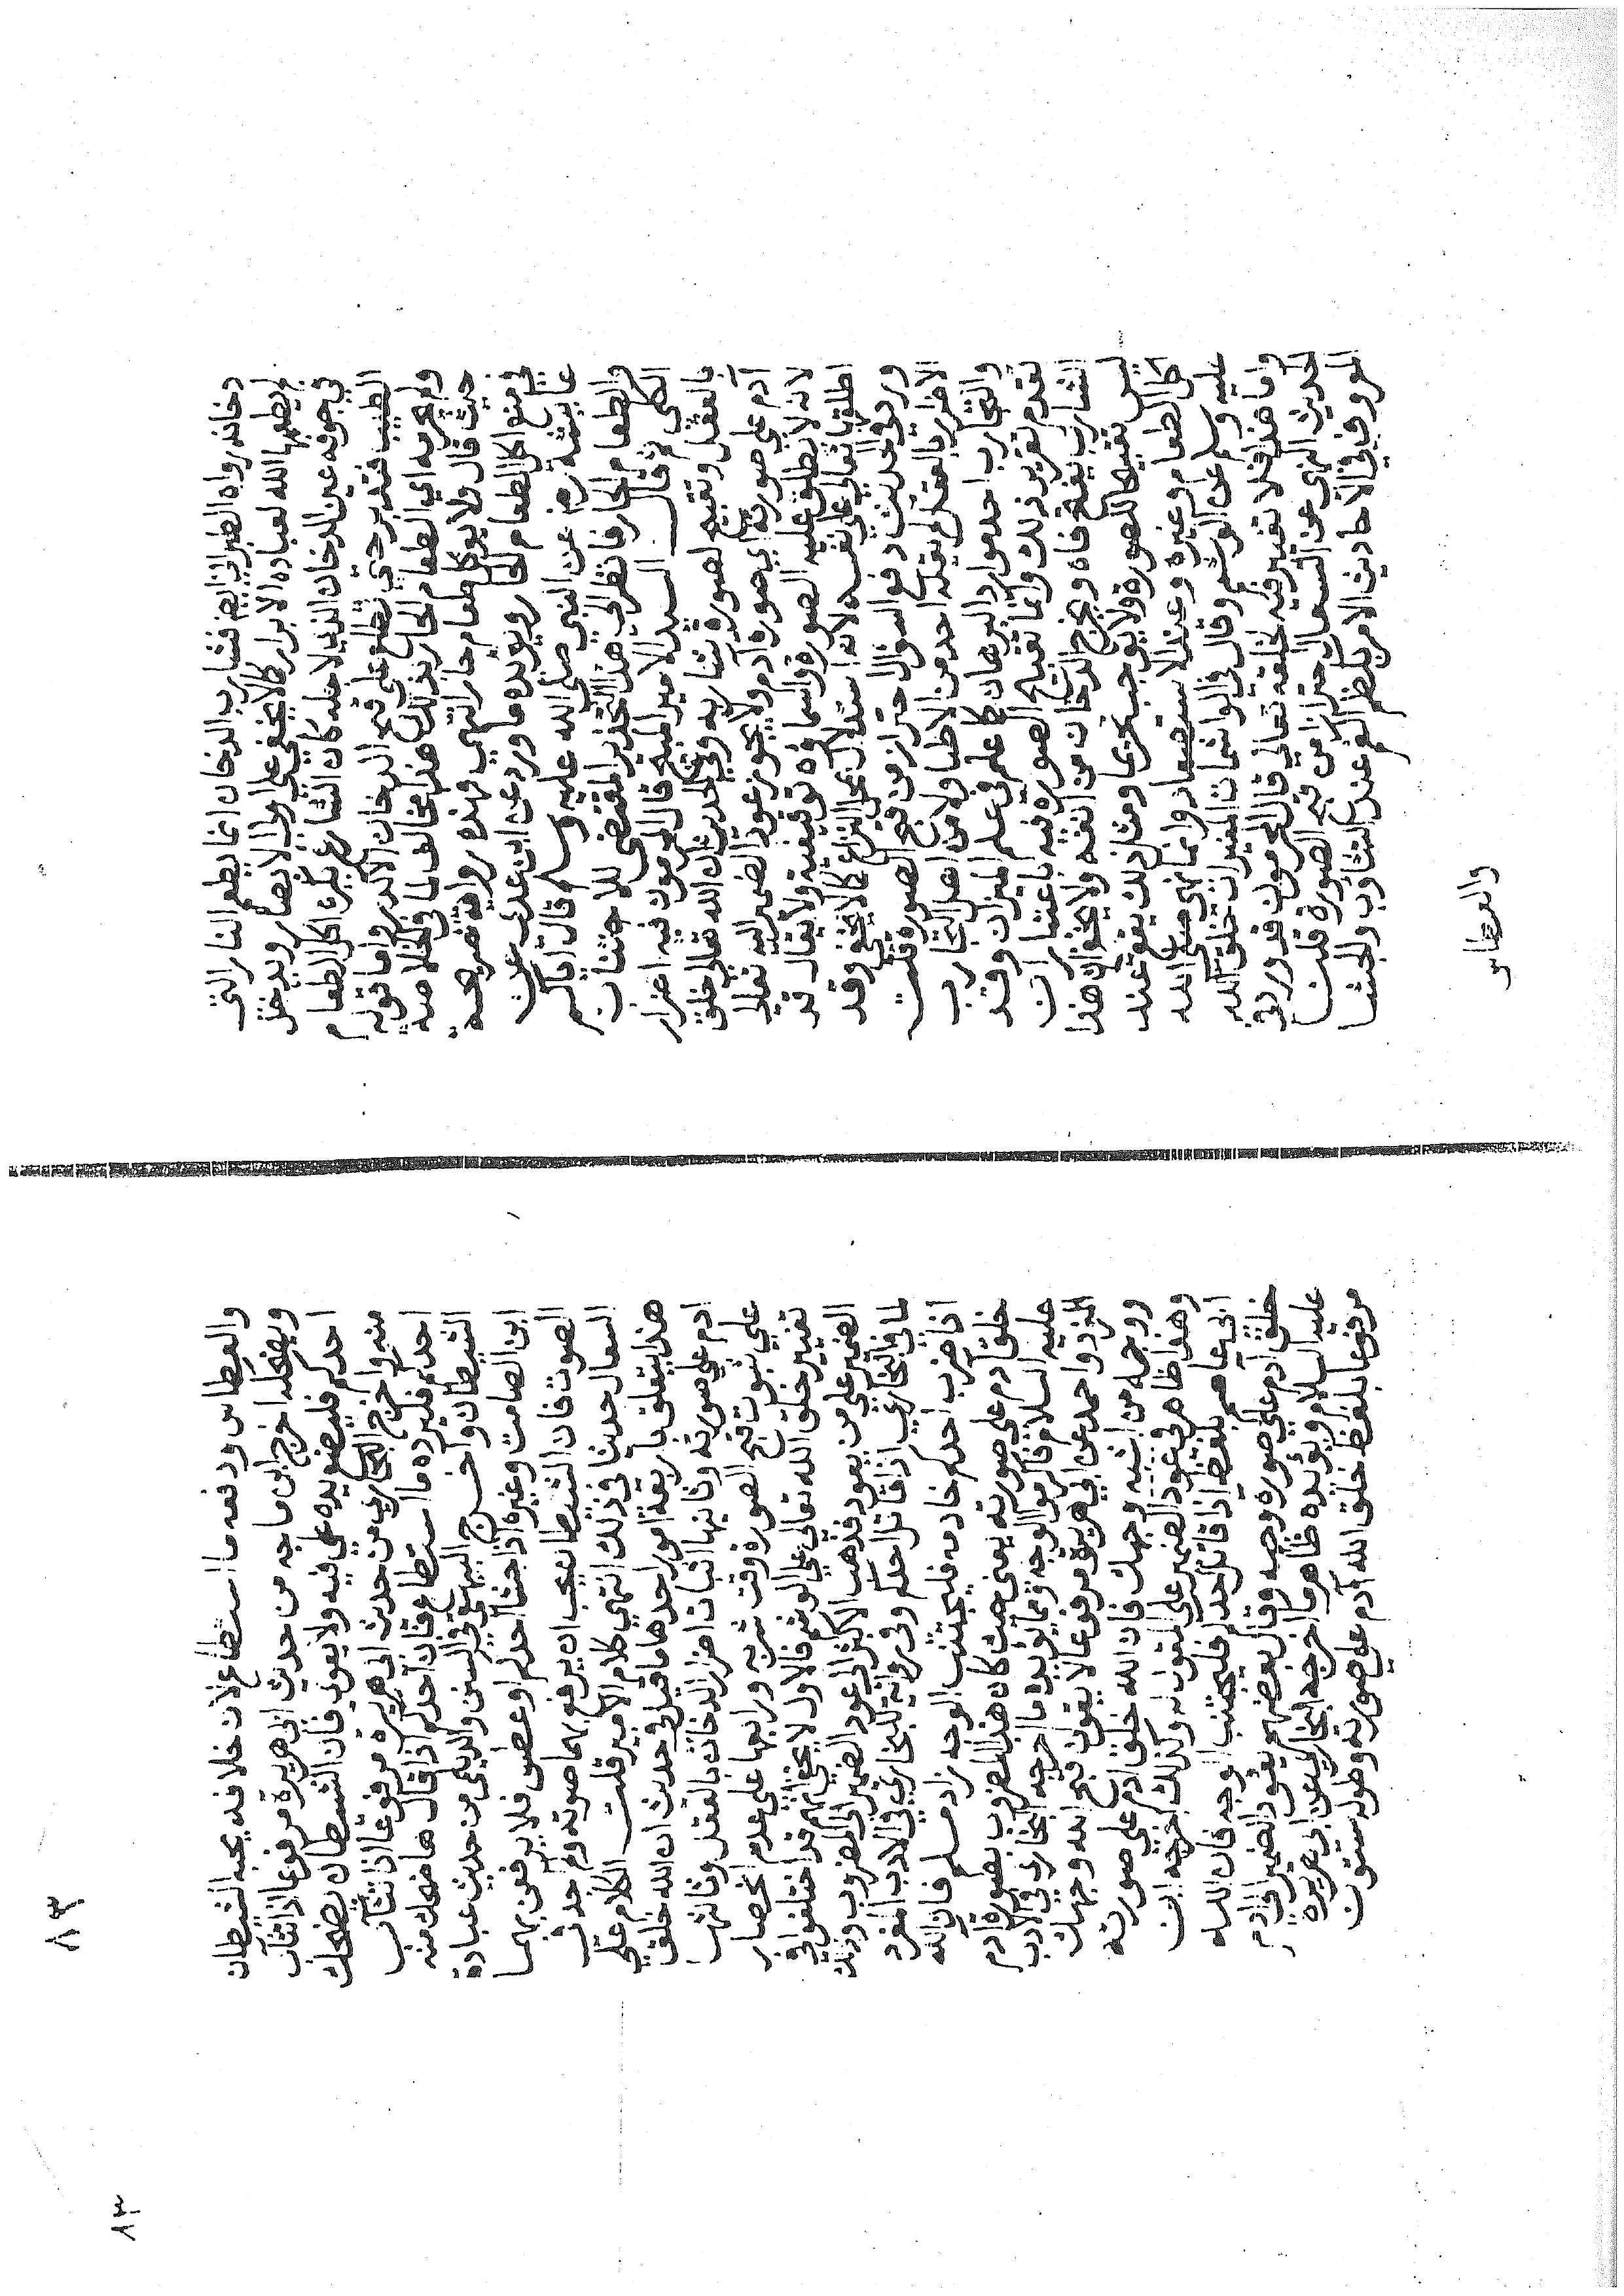 دخانه رواه الطبراني ايضا فشارب الدخان انما يطعم النار التي
لم يطعمها الله لعباده الابرار كما لا يخفى على اولي الابصار ويدخل
في جوفه عين الدخان الذي لاجله كان الشارع يكره اكل الطعام
الطيب فتدبر حتي تطلع على قبح الدخان الاكدر واما قوله
ولم يحرمه اي الطعام الحار بذلك هذا مخالف لما في الخلاصه
حيث قال ولا يوكل طعام حار انتهي فهذه رواية صريحة
في منع اكل الطعام الحار ويويده ما ورد عن ابن عدي عن
عايشة رضي عن النبي صلى الله عليه وسلم قال اياكم
والطعام الحار فانظر الي هذا التحذير المقتضى للاجتناب
الكلى ثم قال السيد الامير المحرمون فيه اضرار
بالعقل وتقبيح لصورة شاربه وفي الحديث ان الله تعالى خلق
آدم على صورته اي صورة آدم ولا يجوز عود الضمير اليه تعالى
لانه لا يطلق عليه الصورة واسماؤه توقيفية ولا يقال قد
اطلقها تعالى على نفسه لانه استدلال بمحل النزاع كما لا يخفى وقد
ورد في الحديث دفع السؤال احتراز من قبح الصورة قلت
الاضرار بالعقل لم يقله احد من الاطبا ولا من اهل التجارب
والتجارب احد مواد البرهان كما علم في علم الميزان وقد
تقدم تقرير ذلك وانما تقبيح الصورة فيه باعتبار ان
الشارب يفتح فاه ويخرج الدخان من انفه ولا يخفى ان هذا
ليس تقبيحا للصورة ولا يوجب تحريما ومثل ذلك يقع عند
اكل الطعام وغيره وعند الاستصعاد وانما نهى صلى الله
عليه وسلم عن الوشم وقال في الواشمات المغيرات خلق الله
واما هذا فلا تغيير فيه لخلقه تعالي قال المحرمون قد ورد في
الحديث النهي عن السعال احترازا من قبح الصورة قلت
المعروف في الاحاديث الامر بكظم الفم عند التثاوب والجشا
والعطاس
٨٣
٨٣
والعطاس ودفعه ما استطاع لان خلافه يحبه الشيطان
ويضحك اخرج ابن ماجه من حديث ابي هريرة مرفوعا اذا تثاب
احدكم فليضع يده على فيه ولا يعوي فان الشيطان يضحك
منه واخرج البخاري من حديث ابي هريرة مرفوعا اذا تثاب
احدكم فليرده ما استطاع فان احدكم اذا قال ها ضحك منه
الشيطان واخرج البيهقي في السنن والديلمى من حديث عبادة
ابن الصامت وغيره اذا تجشا احدكم او عطس فلا يرفعن بهما
الصوت فان الشيطان يحب ان يرفع بهما صوته ولم احد في
السعال حديثا في ذلك انتهي كلام الامير قلت الكلام على
هذا يتعلق باربعة امور احدها ما قيل في حديث ان الله خلق
ادم على صورته وثانيها اثبات اضرار الدخان بالعقل وثالثها
علي ثبوت قبح الصورة وقت شربه ورابعها على عدم انحصار
تغيير خلق الله تعالي علي الوشم فالاول لا يخفى انهم قد اختلفوا في
الضمير على من يعود فذهب الاكثر الى عود الضمير الى المضروب وذلك
لما في البخاري اذا قاتل احدكم وفي رواية للبخاري في الادب المفرد
اذا ضرب احدكم خادمه فليجتنب الوجه زاد مسلم فان الله
خلق ادم على صورته يعنى حيث كان هذا المضروب بصورة آدم
عليه السلام فاكرموا الوجه ومما يؤيده ما اخرجه البخاري في الادب
المفرد واحمد عن ابي هريرة مرفوعا لا يقولن قبح الله وجهك
ووجه من اشبه وجهك فان الله خلق ادم على صورته
وهذا ظاهر في عود الضمير علي المقول له وكذلك اخرجه ابن
ابي عاصم بلفظ اذا قاتل احدكم فليجتنب الوجه فان الله
خلق ادم علي صورة وجهه وقال بعضهم يعود الضمير الى آدم
عليه السلام ويؤيده ظاهر ما اخرجه البخاري عن ابي هريرة
مرفوعا بلفظ خلق الله آدم على صورته وطوله ستون